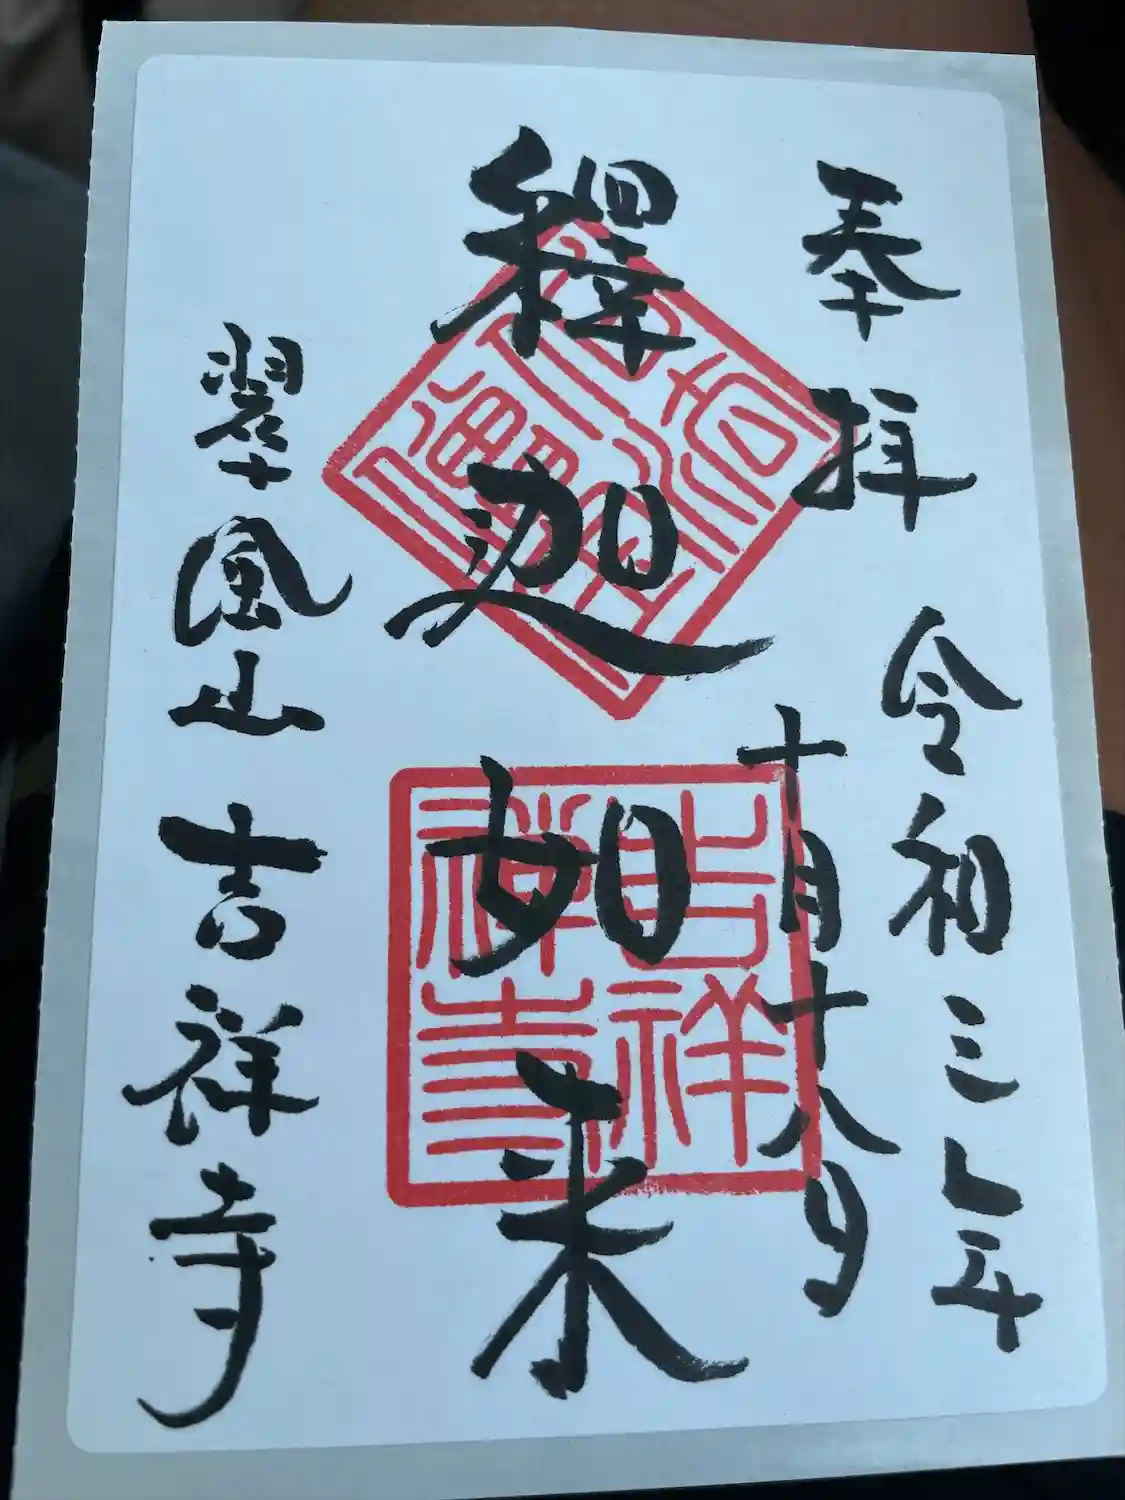 奉拝
令和三年
十月十八日
釋迦如来
吉祥禅寺
翠風山 吉祥寺